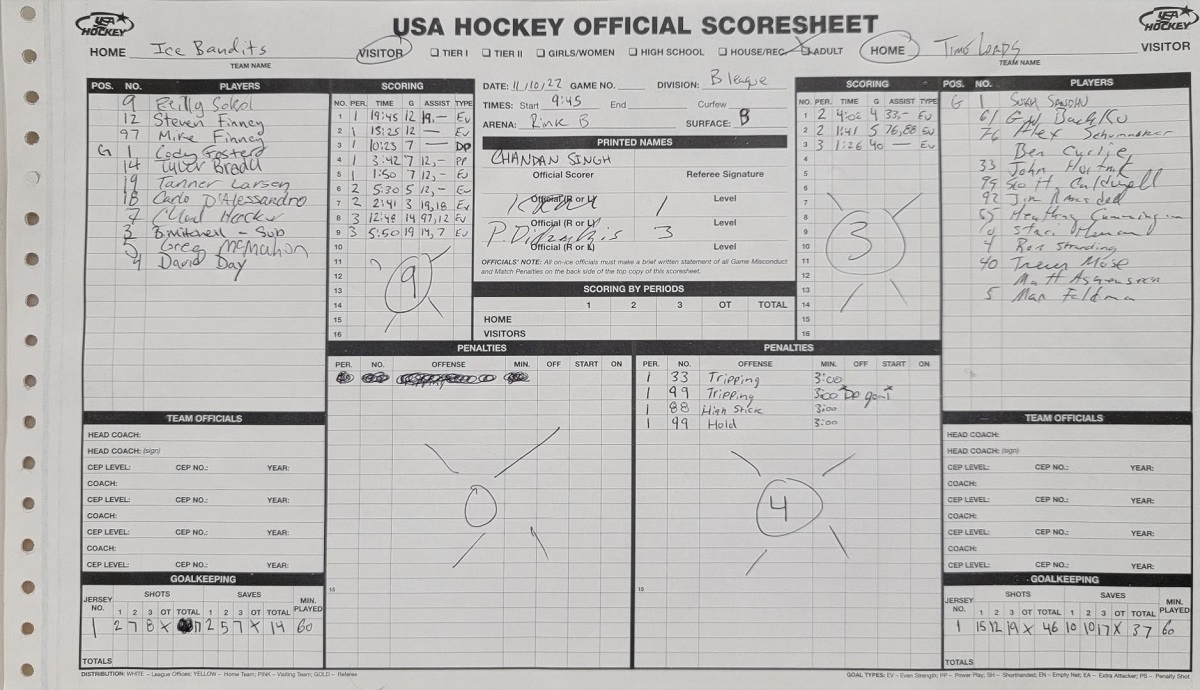 USA HOCKEY
USA HOCKEY OFFICIAL SCORESHEET
USA HOCKEY
HOME Ice Bandits VISITOR TIER I TIER II GIRLS/WOMEN HIGH SCHOOL HOUSE/REC ADULT HOME VISITOR
TEAM NAME TEAM NAME
POS. NO. PLAYERS
9 Reilly Sokol
12 Steven Finney
97 Mike Finney
G 1 Cody Fosterd
14 Tyler Bredl
19 Tanner Larsen
18 Carlo D'Alessandro
7 Chad Hocker
3 B. Mitchell - Sub
5 Greg McMahon
4 David Day
SCORING
NO. PER. TIME G ASSIST TYPE
1 1 19:45 12 19, - EV
2 1 15:25 12 — EV
3 1 10:23 7 — DP
4 1 3:42 7 12, - PP
5 1 1:50 7 12, - EV
6 2 5:30 5 12, - EV
7 2 2:41 3 19,18 EV
8 3 12:48 14 97,12 EV
9 3 5:50 19 14,7 EV
10
11
12
13
14
15
16
9
DATE: 11/10/22 GAME NO. DIVISION: B league
TIMES: Start 9:45 End Curfew
ARENA: Rink B SURFACE: B
PRINTED NAMES
CHANDAN SINGH
Official Scorer Referee Signature
1
Official (R or L) Level
3
Official (R or L) Level
Official (R or L) Level
OFFICIALS' NOTE: All on-ice officials must make a brief written statement of all Game Misconduct
and Match Penalties on the back side of the top copy of this scoresheet.
SCORING BY PERIODS
1 2 3 OT TOTAL
HOME
VISITORS
SCORING
NO. PER. TIME G ASSIST TYPE
1 2 4:02 4 33, - EV
2 2 1:41 5 76,88 EV
3 3 1:26 40 — EV
4
5
6
7
8
9
10
11
12
13
14
15
16
3
POS. NO. PLAYERS
G 1
61
76 Alex Schumaker
Ben
33 John
99 Scott Caldwell
92 Jim
Heather
Staci
4 Ron Standing
40 Trevor Mose
Matt
5 Max Feldman
PENALTIES
PER. NO. OFFENSE MIN. OFF START ON
0
15
PENALTIES
PER. NO. OFFENSE MIN. OFF START ON
1 33 Tripping 3:00
1 99 Tripping 3:00 *DP goal*
1 88 High Stick 3:00
1 99 Hold 3:00
4
15
TEAM OFFICIALS
HEAD COACH:
HEAD COACH: (sign)
CEP LEVEL: CEP NO.: YEAR:
COACH:
CEP LEVEL: CEP NO.: YEAR:
COACH:
CEP LEVEL: CEP NO.: YEAR:
COACH:
CEP LEVEL: CEP NO.: YEAR:
TEAM OFFICIALS
HEAD COACH:
HEAD COACH: (sign)
CEP LEVEL: CEP NO.: YEAR:
COACH:
CEP LEVEL: CEP NO.: YEAR:
COACH:
CEP LEVEL: CEP NO.: YEAR:
COACH:
CEP LEVEL: CEP NO.: YEAR:
GOALKEEPING
JERSEY NO. SHOTS SAVES MIN. PLAYED
1 2 3 OT TOTAL 1 2 3 OT TOTAL
1 2 7 8 X 17 2 5 7 X 14 60
TOTALS
GOALKEEPING
JERSEY NO. SHOTS SAVES MIN. PLAYED
1 2 3 OT TOTAL 1 2 3 OT TOTAL
1 15 12 19 X 46 10 10 17 X 37 60
TOTALS
DISTRIBUTION: WHITE – League Offices; YELLOW – Home Team; PINK – Visiting Team; GOLD – Referee
GOAL TYPES: EV – Even Strength; PP – Power Play; SH – Shorthanded; EN – Empty Net; EA – Extra Attacker; PS – Penalty Shot